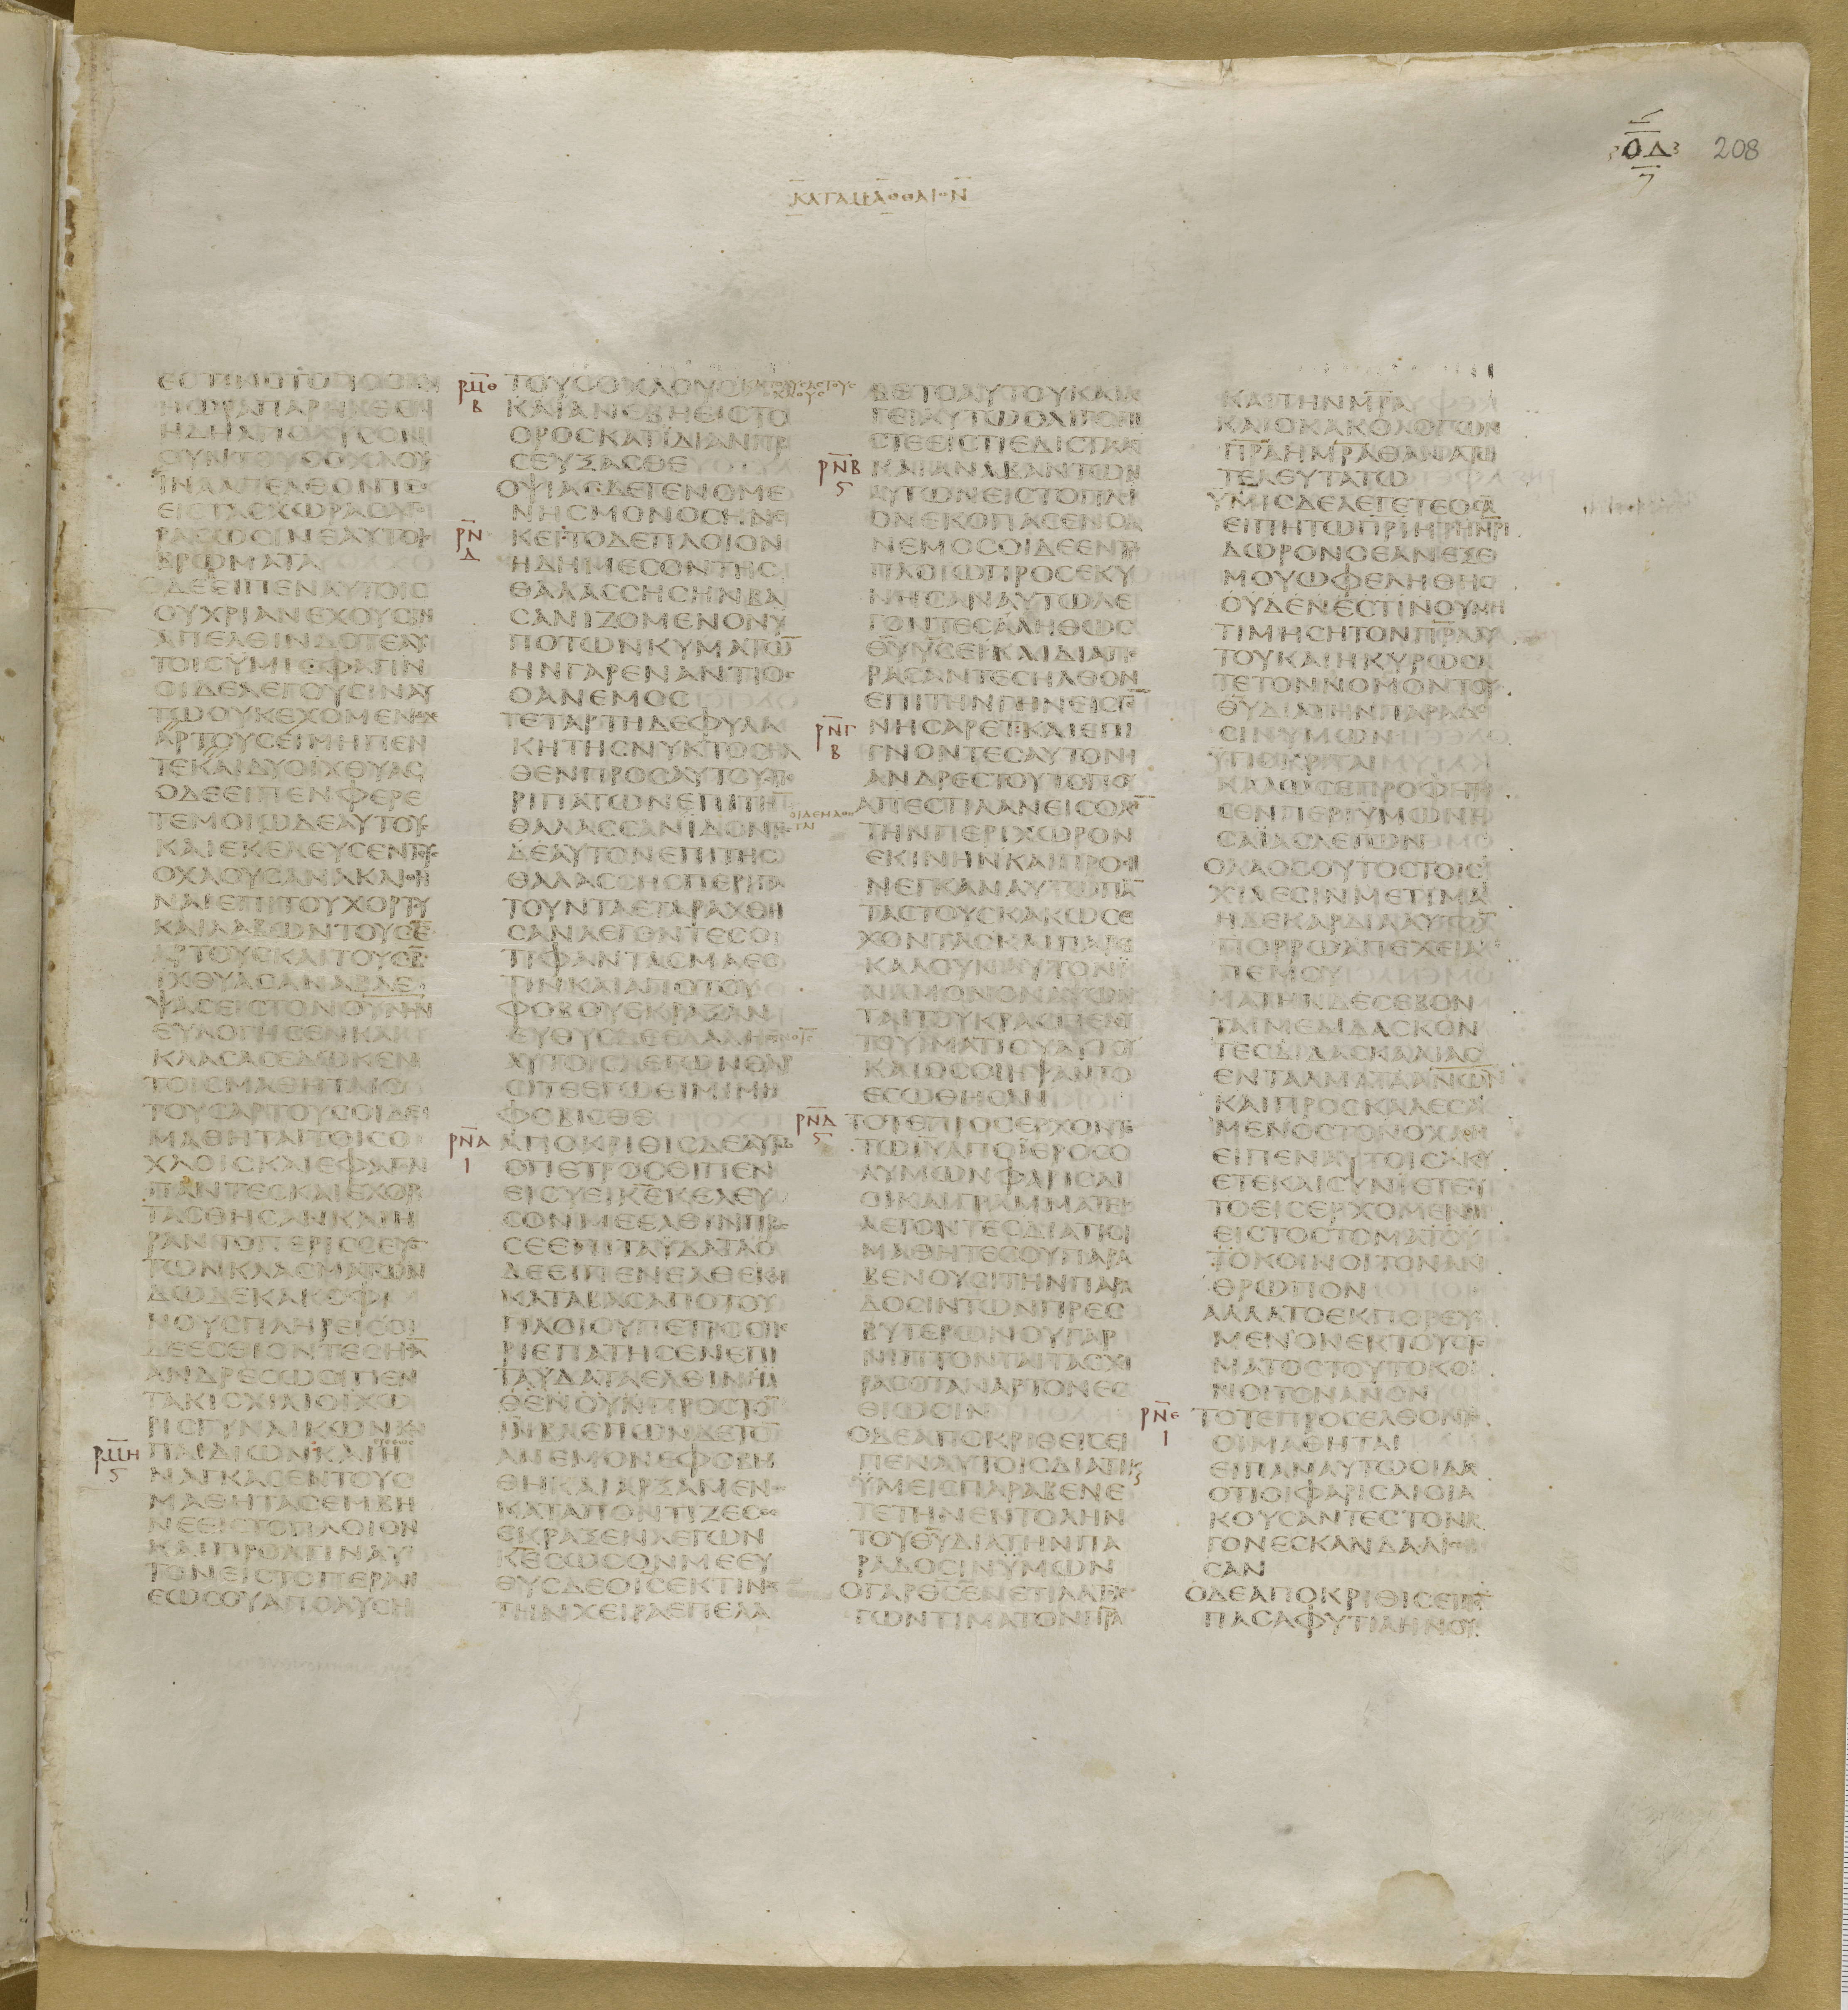 ΟΔ 208
ΚΑΤΑΜΑΘΘΑΙΟΝ
ΕϹΤΙΝΟΤΟΠΟϹΚΑΙ
ΗΩΡΑΠΑΡΗΛΘΕΝ
ΗΔΗΑΠΟΛΥϹΟΝ
ΟΥΝΤΟΥϹΟΧΛΟΥϹ
ΪΝΑΑΠΕΛΘΟΝΤΕϹ
ΕΙϹΤΑϹΧΩΡΑϹ
ΒΡΩΜΑΤΑ
ΟΔΕΕΙΠΕΝΑΥΤΟΙϹ
ΟΥΧΡΙΑΝΕΧΟΥϹΙΝ
ΑΠΕΛΘΙΝΔΟΤΕΑΥ
ΤΟΙϹΥΜΙϹΦΑΓΙΝ
ΟΙΔΕΛΕΓΟΥϹΙΝΑΥ
ΤΩΟΥΚΕΧΟΜΕΝΩΔΕ
ΑΡΤΟΥϹΕΙΜΗΠΕΝ
ΤΕΚΑΙΔΥΟΙΧΘΥΑϹ
ΟΔΕΕΙΠΕΝΦΕΡΕ
ΤΕΜΟΙΩΔΕΑΥΤΟΥϹ
ΚΑΙΕΚΕΛΕΥϹΕΝΤΟΥϹ
ΟΧΛΟΥϹΑΝΑΚΛΙΘΗ
ΝΑΙΕΠΙΤΟΥΧΟΡΤΟΥ
ΚΑΙΛΑΒΩΝΤΟΥϹΕ
ΑΡΤΟΥϹΚΑΙΤΟΥϹΒ
ΙΧΘΥΑϹΑΝΑΒΛΕ
ΨΑϹΕΙϹΤΟΝΟΥΝΟΝ
ΕΥΛΟΓΗϹΕΝΚΑΙ
ΚΛΑϹΑϹΕΔΩΚΕΝ
ΤΟΙϹΜΑΘΗΤΑΙϹ
ΤΟΥϹΑΡΤΟΥϹΟΙΔΕ
ΜΑΘΗΤΑΙΤΟΙϹΟ
ΧΛΟΙϹΚΑΙΕΦΑΓΟΝ
ΠΑΝΤΕϹΚΑΙΕΧΟΡ
ΤΑϹΘΗϹΑΝΚΑΙΗ
ΡΑΝΤΟΠΕΡΙϹϹΕΥΟΝ
ΤΩΝΚΛΑϹΜΑΤΩΝ
ΔΩΔΕΚΑΚΟΦΙ
ΝΟΥϹΠΛΗΡΕΙϹΟΙ
ΔΕΕϹΘΙΟΝΤΕϹΗϹΑ
ΑΝΔΡΕϹΩϹΠΕΝ
ΤΑΚΙϹΧΙΛΙΟΙΧΩ
ΡΙϹΓΥΝΑΙΚΩΝΚΑΙ
ΡΜΗ Ϛ ΠΑΙΔΙΩΝΚΑΙΗ
ΝΑΓΚΑϹΕΝΤΟΥϹ
ΜΑΘΗΤΑϹΕΜΒΗ
ΝΕΕΙϹΤΟΠΛΟΙΟΝ
ΚΑΙΠΡΟΑΓΙΝΑΥ
ΤΟΝΕΙϹΤΟΠΕΡΑΝ
ΕΩϹΟΥΑΠΟΛΥϹΗ
ΡΜΘ Β ΤΟΥϹΟΧΛΟΥϹ
ΚΑΙΑΝΕΒΗΕΙϹΤΟ
ΟΡΟϹΚΑΤΪΔΙΑΝΠΡΟ
ϹΕΥΞΑϹΘΕ
ΟΨΙΑϹΔΕΓΕΝΟΜΕ
ΝΗϹΜΟΝΟϹΗΝΕ
ΡΝ Δ ΚΕΙΤΟΔΕΠΛΟΙΟΝ
ΗΔΗΜΕϹΟΝΤΗϹ
ΘΑΛΑϹϹΗϹΗΝΒΑ
ϹΑΝΙΖΟΜΕΝΟΝΥ
ΠΟΤΩΝΚΥΜΑΤΩ
ΗΝΓΑΡΕΝΑΝΤΙΟϹ
ΟΑΝΕΜΟϹ
ΤΕΤΑΡΤΗΔΕΦΥΛΑ
ΚΗΤΗϹΝΥΚΤΟϹΗΛ
ΘΕΝΠΡΟϹΑΥΤΟΥϹΠΕ
ΡΙΠΑΤΩΝΕΠΙΤΗΝ
ΘΑΛΑϹϹΑΝΪΔΟΝΤΕϹ
ΔΕΑΥΤΟΝΕΠΙΤΗϹ
ΘΑΛΑϹϹΗϹΠΕΡΙΠΑ
ΤΟΥΝΤΑΕΤΑΡΑΧΘΗ
ϹΑΝΛΕΓΟΝΤΕϹΟ
ΤΙΦΑΝΤΑϹΜΑΕϹ
ΤΙΝΚΑΙΑΠΟΤΟΥ
ΦΟΒΟΥΕΚΡΑΞΑΝ
ΕΥΘΥϹΔΕΕΛΑΛΗϹΕΝ
ΑΥΤΟΙϹΛΕΓΩΝΘΑΡ
ϹΙΤΕΕΓΩΕΙΜΙΜΗ
ΦΟΒΙϹΘΕ
ΡΝΑ Ι ΑΠΟΚΡΙΘΙϹΔΕΑΥΤΩ
ΟΠΕΤΡΟϹΕΙΠΕΝ
ΕΙϹΥΕΙΚΕΚΕΛΕΥ
ϹΟΝΜΕΕΛΘΙΝΠΡΟϹ
ϹΕΕΠΙΤΑΫΔΑΤΑΟ
ΔΕΕΙΠΕΝΕΛΘΕΚΑΙ
ΚΑΤΑΒΑϹΑΠΟΤΟΥ
ΠΛΟΙΟΥΠΕΤΡΟϹΠΕ
ΡΙΕΠΑΤΗϹΕΝΕΠΙ
ΤΑΫΔΑΤΑΕΛΘΙΝΗΛ
ΘΕΝΟΥΝΠΡΟϹΤΟ
ΙΝΒΛΕΠΩΝΔΕΤΟ
ΑΝΕΜΟΝΕΦΟΒΗ
ΘΗΚΑΙΑΡΞΑΜΕΝΟϹ
ΚΑΤΑΠΟΝΤΙΖΕϹΘΑΙ
ΕΚΡΑΞΕΝΛΕΓΩΝ
ΚΕϹΩϹΟΝΜΕΕΥ
ΘΥϹΔΕΟΙϹΕΚΤΙΝΑϹ
ΤΗΝΧΕΙΡΑΕΠΕΛΑ
ΒΕΤΟΑΥΤΟΥΚΑΙΛΕ
ΓΕΙΑΥΤΩΟΛΙΓΟΠΙ
ϹΤΕΕΙϹΤΙΕΔΙϹΤΑϹΑϹ
ΡΝΒ Ϛ ΚΑΙΑΝΑΒΑΝΤΩΝ
ΑΥΤΩΝΕΙϹΤΟΠΛΟΙ
ΟΝΕΚΟΠΑϹΕΝΟΑ
ΝΕΜΟϹΟΙΔΕΕΝΤΩ
ΠΛΟΙΩΠΡΟϹΕΚΥ
ΝΗϹΑΝΑΥΤΩΛΕ
ΓΟΝΤΕϹΑΛΗΘΩϹ
ΘΥΥϹΕΙΚΑΙΔΙΑΠΕ
ΡΑϹΑΝΤΕϹΗΛΘΟΝ
ΕΠΙΤΗΝΓΗΝΕΙϹΓΕ
ΡΝΓ Β ΝΗϹΑΡΕΤΚΑΙΕΠΙ
ΓΝΟΝΤΕϹΑΥΤΟΝΟΙ
ΑΝΔΡΕϹΤΟΥΤΟΠΟΥ
ΑΠΕϹΤΙΛΑΝΕΙϹΟΛΗ
ΤΗΝΠΕΡΙΧΩΡΟΝ
ΕΚΙΝΗΝΚΑΙΠΡΟϹΗ
ΝΕΓΚΑΝΑΥΤΩΠΑ
ΤΑϹΤΟΥϹΚΑΚΩϹΕ
ΧΟΝΤΑϹΚΑΙΠΑΡΕ
ΚΑΛΟΥΝΑΥΤΟΝΪ
ΝΑΜΟΝΟΝΑΨΩΝ
ΤΑΙΤΟΥΚΡΑϹΠΕΔΟΥ
ΤΟΥΪΜΑΤΙΟΥΑΥΤΟΥ
ΚΑΙΟϹΟΙΗΨΑΝΤΟ
ΕϹΩΘΗϹΑΝ
ΡΝΔ Ϛ ΤΟΤΕΠΡΟϹΕΡΧΟΝΤΑΙ
ΤΩΙΥΑΠΟΪΕΡΟϹΟ
ΛΥΜΩΝΦΑΡΙϹΑΙ
ΟΙΚΑΙΓΡΑΜΜΑΤΕΙϹ
ΛΕΓΟΝΤΕϹΔΙΑΤΙΟΙ
ΜΑΘΗΤΕϹΟΥΠΑΡΑ
ΒΕΝΟΥϹΙΤΗΝΠΑΡΑ
ΔΟϹΙΝΤΩΝΠΡΕϹ
ΒΥΤΕΡΩΝΟΥΓΑΡ
ΝΙΠΤΟΝΤΑΙΤΑϹΧΙ
ΡΑϹΟΤΑΝΑΡΤΟΝΕϹ
ΘΙΩϹΙΝ
ΟΔΕΑΠΟΚΡΙΘΕΙϹΕΙ
ΠΕΝΑΥΤΟΙϹΔΙΑΤΙΚΑΙ
ΫΜΕΙϹΠΑΡΑΒΕΝΕ
ΤΕΤΗΝΕΝΤΟΛΗΝ
ΤΟΥΘΥΔΙΑΤΗΝΠΑ
ΡΑΔΟϹΙΝΫΜΩΝ
ΟΓΑΡΘϹΕΝΕΤΙΛΑΤΟ
ΓΩΝΤΙΜΑΤΟΝΠΡΑ
ΚΑΙΤΗΝΜΡΑ
ΚΑΙΟΚΑΚΟΛΟΓΩΝ
ΠΡΑΗΜΡΑΘΑΝΑΤΩ
ΤΕΛΕΥΤΑΤΩ
ΫΜΙϹΔΕΛΕΓΕΤΕΟϹΑ
ΕΙΠΗΤΩΠΡΙΗΤΗΜΡΙ
ΔΩΡΟΝΟΕΑΝΕΞΕ
ΜΟΥΩΦΕΛΗΘΗϹ
ΟΥΔΕΝΕϹΤΙΝΟΥΜΗ
ΤΙΜΗϹΗΤΟΝΠΡΑΑΥ
ΤΟΥΚΑΙΗΚΥΡΩϹΑ
ΤΕΤΟΝΝΟΜΟΝΤΟΥ
ΘΥΔΙΑΤΗΝΠΑΡΑΔΟ
ϹΙΝΫΜΩΝ
ΫΠΟΚΡΙΤΑΙ
ΚΑΛΩϹΕΠΡΟΦΗΤΕΥ
ϹΕΝΠΕΡΙΫΜΩΝΗ
ϹΑΪΑϹΛΕΓΩΝ
ΟΛΑΟϹΟΥΤΟϹΤΟΙϹ
ΧΙΛΕϹΙΝΜΕΤΙΜΑ
ΗΔΕΚΑΡΔΙΑΑΥΤΩ
ΠΟΡΡΩΑΠΕΧΕΙΑ
ΠΕΜΟΥ
ΜΑΤΗΝΔΕϹΕΒΟΝ
ΤΑΙΜΕΔΙΔΑϹΚΟΝ
ΤΕϹΔΙΔΑϹΚΑΛΙΑϹ
ΕΝΤΑΛΜΑΤΑΑΝΩΝ
ΚΑΙΠΡΟϹΚΑΛΕϹΑ
ΜΕΝΟϹΤΟΝΟΧΛΟΝ
ΕΙΠΕΝΑΥΤΟΙϹΑΚΟΥ
ΕΤΕΚΑΙϹΥΝΙΕΤΕΟΥ
ΤΟΕΙϹΕΡΧΟΜΕΝΟΝ
ΕΙϹΤΟϹΤΟΜΑΤΟΥ
ΤΟΚΟΙΝΟΙΤΟΝΑΝ
ΘΡΩΠΟΝ
ΑΛΛΑΤΟΕΚΠΟΡΕΥΟ
ΜΕΝΟΝΕΚΤΟΥϹΤΟ
ΜΑΤΟϹΤΟΥΤΟΚΟΙ
ΝΟΙΤΟΝΑΝΟΝ
ΡΝΕ Ι ΤΟΤΕΠΡΟϹΕΛΘΟΝΤΕϹ
ΟΙΜΑΘΗΤΑΙ
ΕΙΠΑΝΑΥΤΩΟΙΔΑϹ
ΟΤΙΟΙΦΑΡΙϹΑΙΟΙΑ
ΚΟΥϹΑΝΤΕϹΤΟΝΛΟ
ΓΟΝΕϹΚΑΝΔΑΛΙϹΘΗ
ϹΑΝ
ΟΔΕΑΠΟΚΡΙΘΙϹΕΙΠΕ
ΠΑϹΑΦΥΤΙΑΗΝΟΥΚ